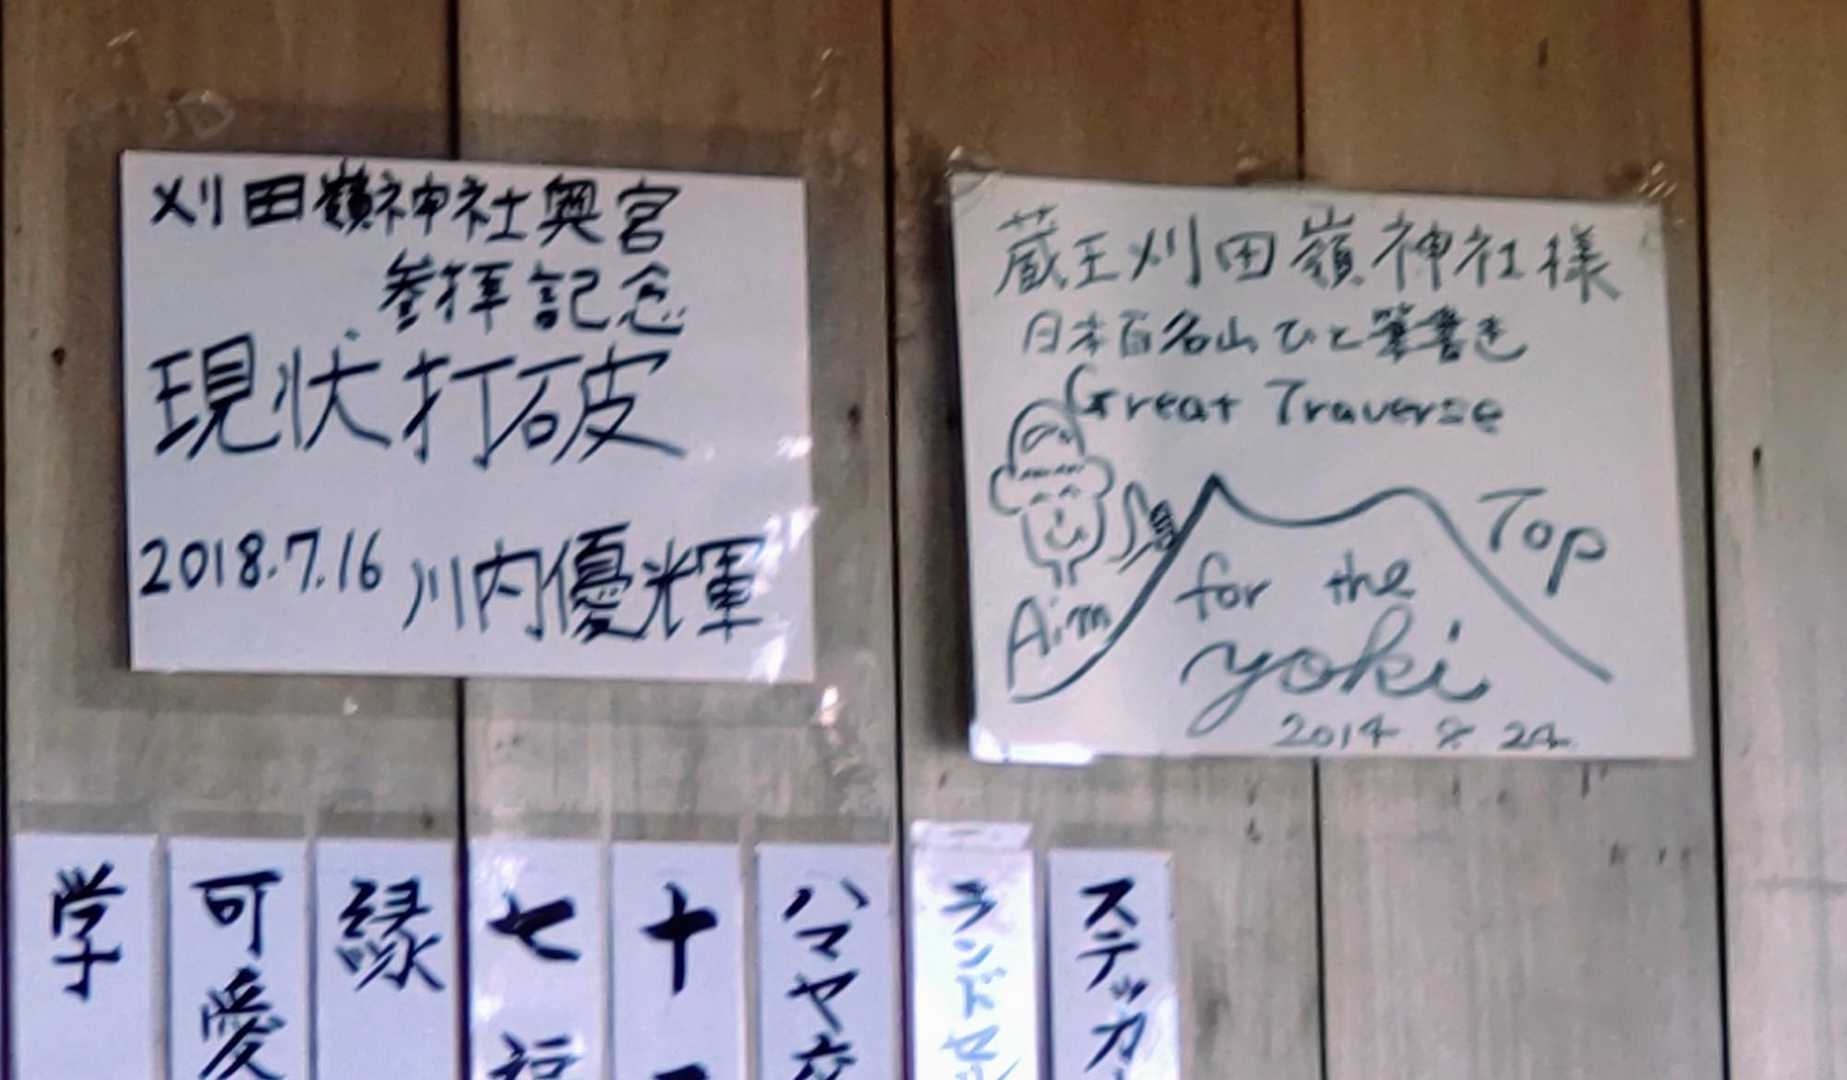 刈田嶺神社奥宮
参拝記念
現状打破
2018.7.16 川内優輝
蔵王刈田嶺神社様
日本百名山ひと筆書き
Great Traverse
Aim for the Top
yoki
2014 8 24
学
可愛
縁
七福
十
ハマヤ
ランドセル
ステッカー